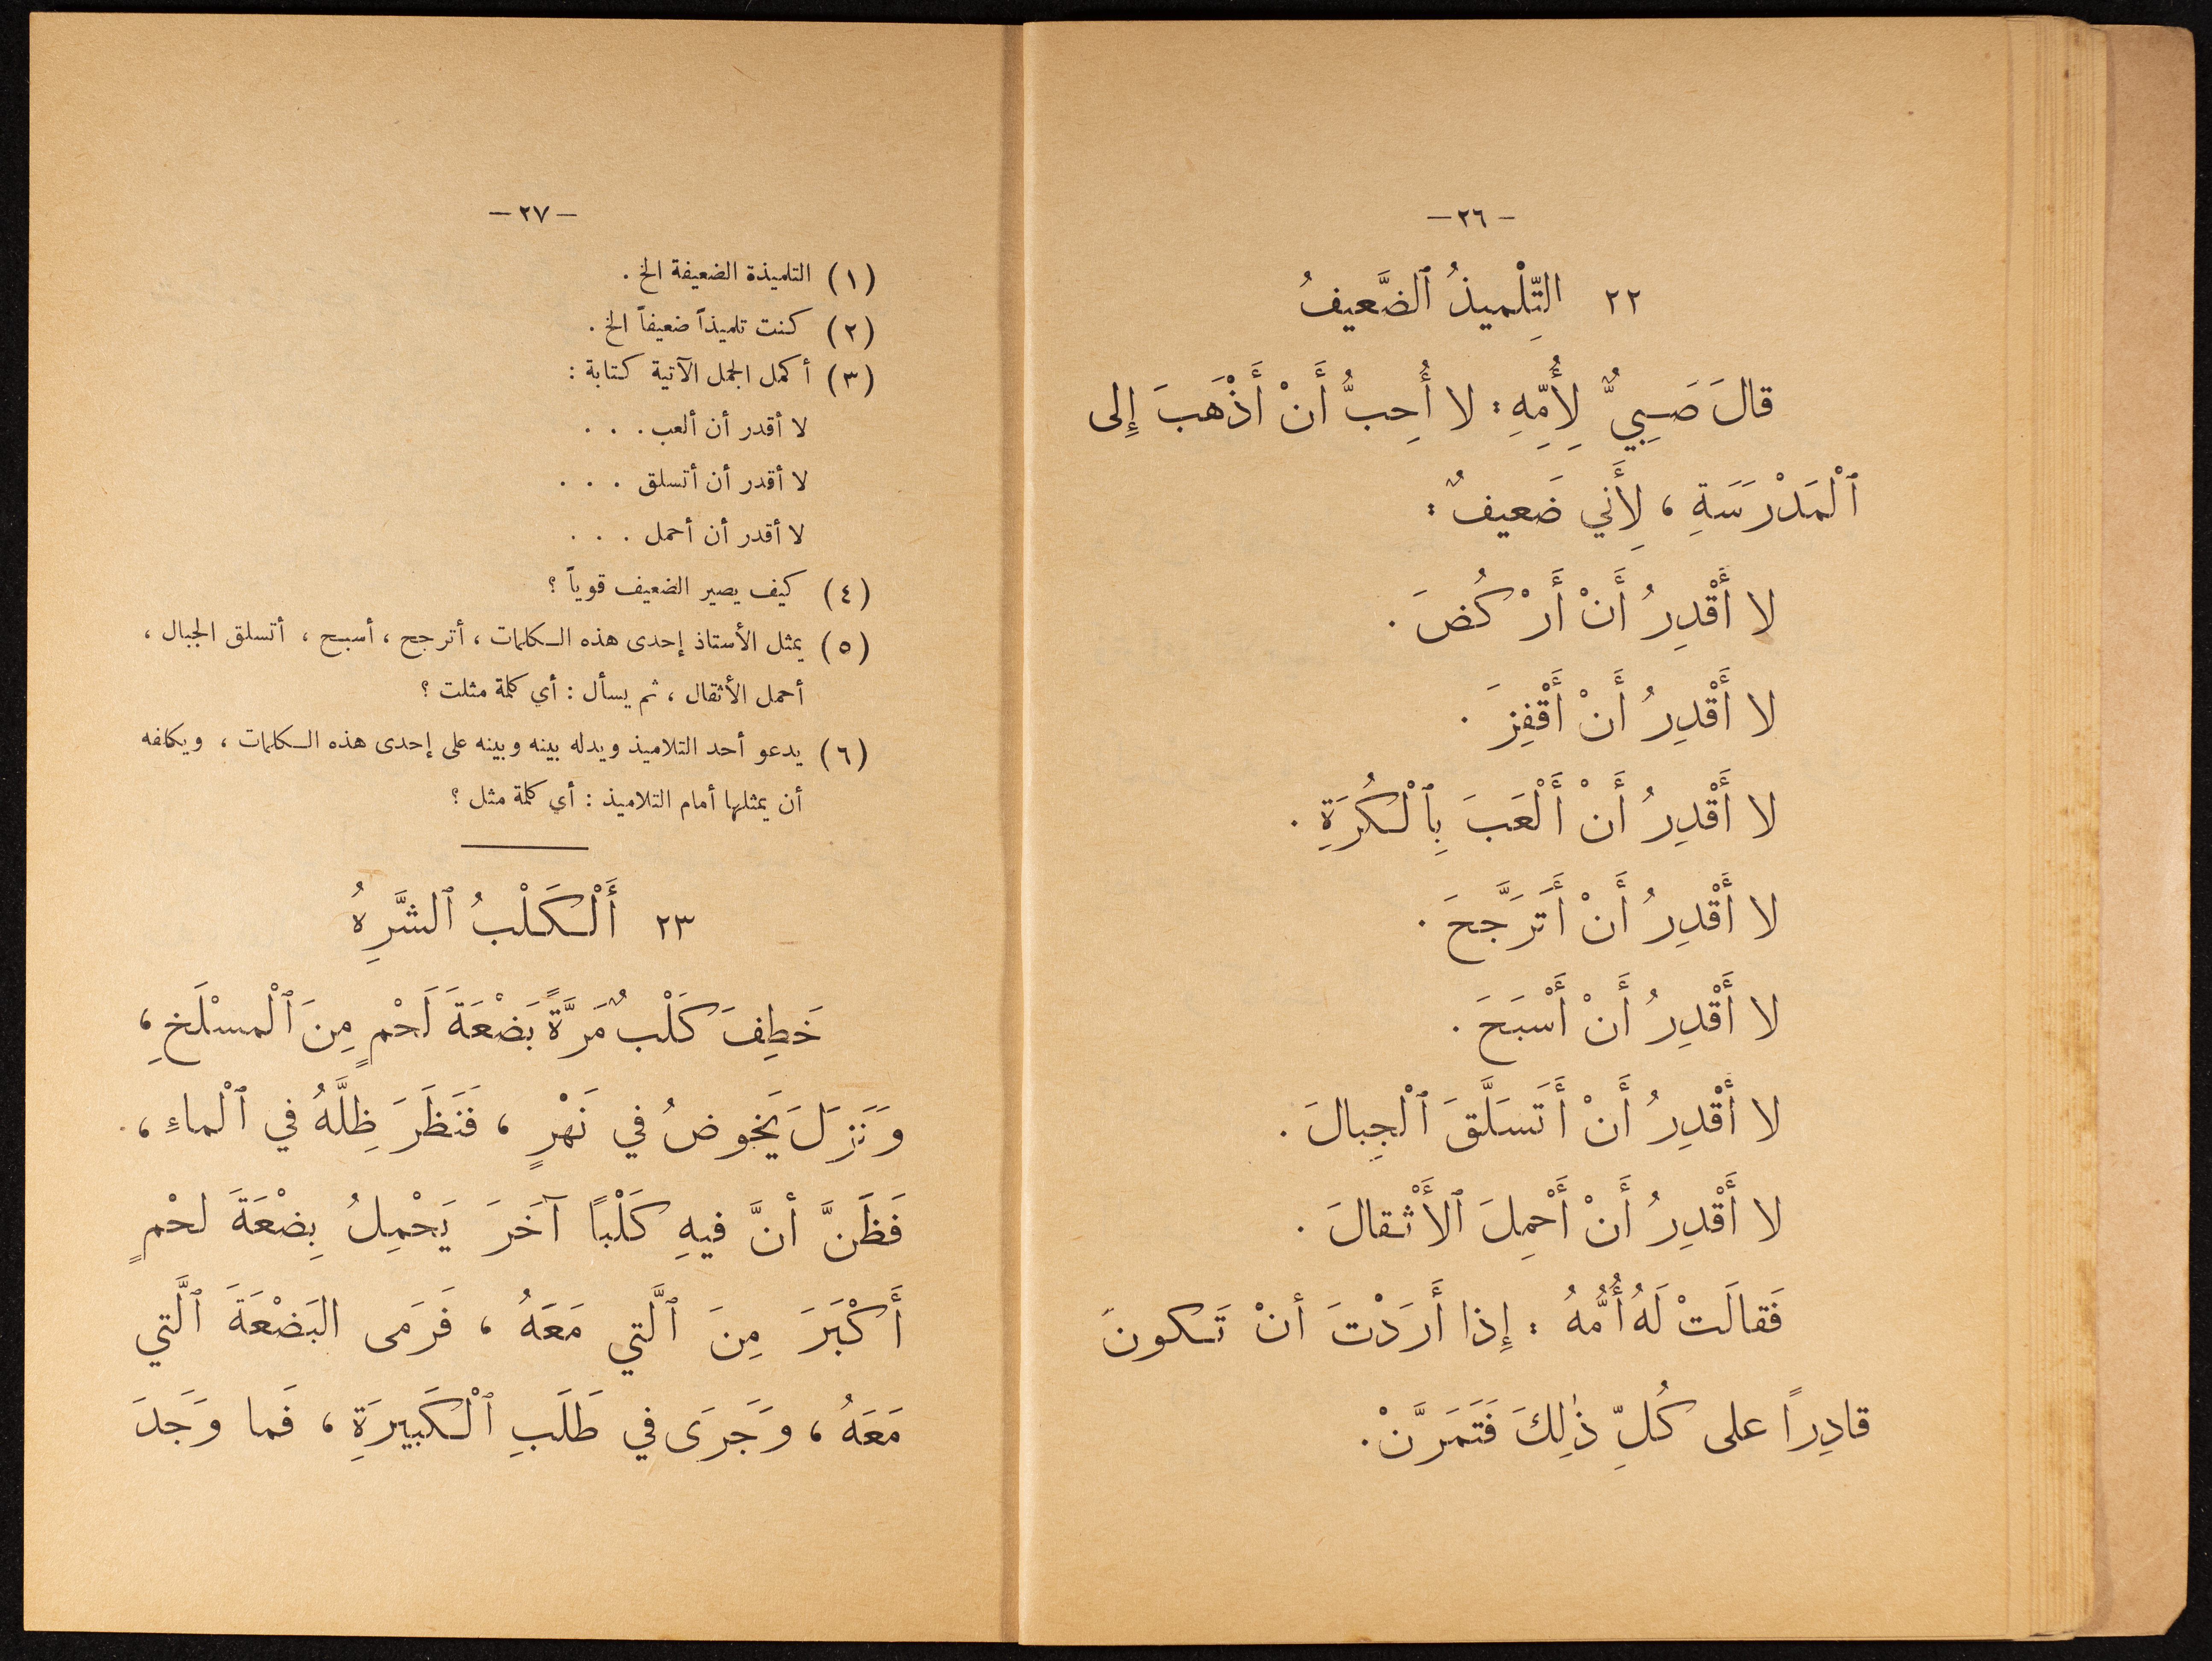 — ٢٦ —
٢٢ التِّلْميذُ ٱلضَّعيفُ
قالَ صَبِيٌّ لِأُمِّهِ : لا أُحِبُّ أَنْ أَذْهَبَ إِلى
ٱلْمَدْرَسَةِ ، لِأَني ضَعيفٌ :
لا أَقْدِرُ أَنْ أَرْكُضَ .
لا أَقْدِرُ أَنْ أَقْفِزَ .
لا أَقْدِرُ أَنْ أَلْعَبَ بِٱلْكُرَةِ .
لا أَقْدِرُ أَنْ أَتَرَجَّحَ .
لا أَقْدِرُ أَنْ أَسْبَحَ .
لا أَقْدِرُ أَنْ أَتَسَلَّقَ ٱلْجِبالَ .
لا أَقْدِرُ أَنْ أَحْمِلَ ٱلأَثْقالَ .
فَقالَتْ لَهُ أُمُّهُ : إِذا أَرَدْتَ أنْ تَكونَ
قادِراً على كُلِّ ذٰلِكَ فَتَمَرَّنْ .
— ٢٧ —
(١) التلميذة الضعيفة الخ .
(٢) كنت تلميذاً ضعيفاً الخ .
(٣) أكمل الجمل الآتية كتابة :
لا أقدر أن ألعب . . .
لا أقدر أن أتسلق . . .
لا أقدر أن أحمل . . .
(٤) كيف يصير الضعيف قوياً ؟
(٥) يمثل الأستاذ إحدى هذه الكلمات ، أترجح ، أسبح ، أتسلق الجبال ،
أحمل الأثقال ، ثم يسأل : أي كلمة مثلت ؟
(٦) يدعو أحد التلاميذ ويدله بينه وبينه على إحدى هذه الكلمات ، ويكلفه
أن يمثلها أمام التلاميذ : أي كلمة مثل ؟
٢٣ أَلْكَلْبُ ٱلشَّرِهُ
خَطِفَ كَلْبٌ مَرَّةً بَضْعَةَ لَحْمٍ مِنَ ٱلْمسْلَخِ ،
وَنَزَلَ يَخوضُ في نَهْرٍ ، فَنَظَرَ ظِلَّهُ في ٱلْماءِ ،
فَظَنَّ أنَّ فيهِ كَلْبًا آخَرَ يَحْمِلُ بِضْعَةَ لحْمٍ
أَكْبَرَ مِنَ ٱلَّتي مَعَهُ ، فَرَمى البَضْعَةَ ٱلَّتي
مَعَهُ ، وَجَرَى في طَلَبِ ٱلْكَبيرَةِ ، فَما وَجَدَ